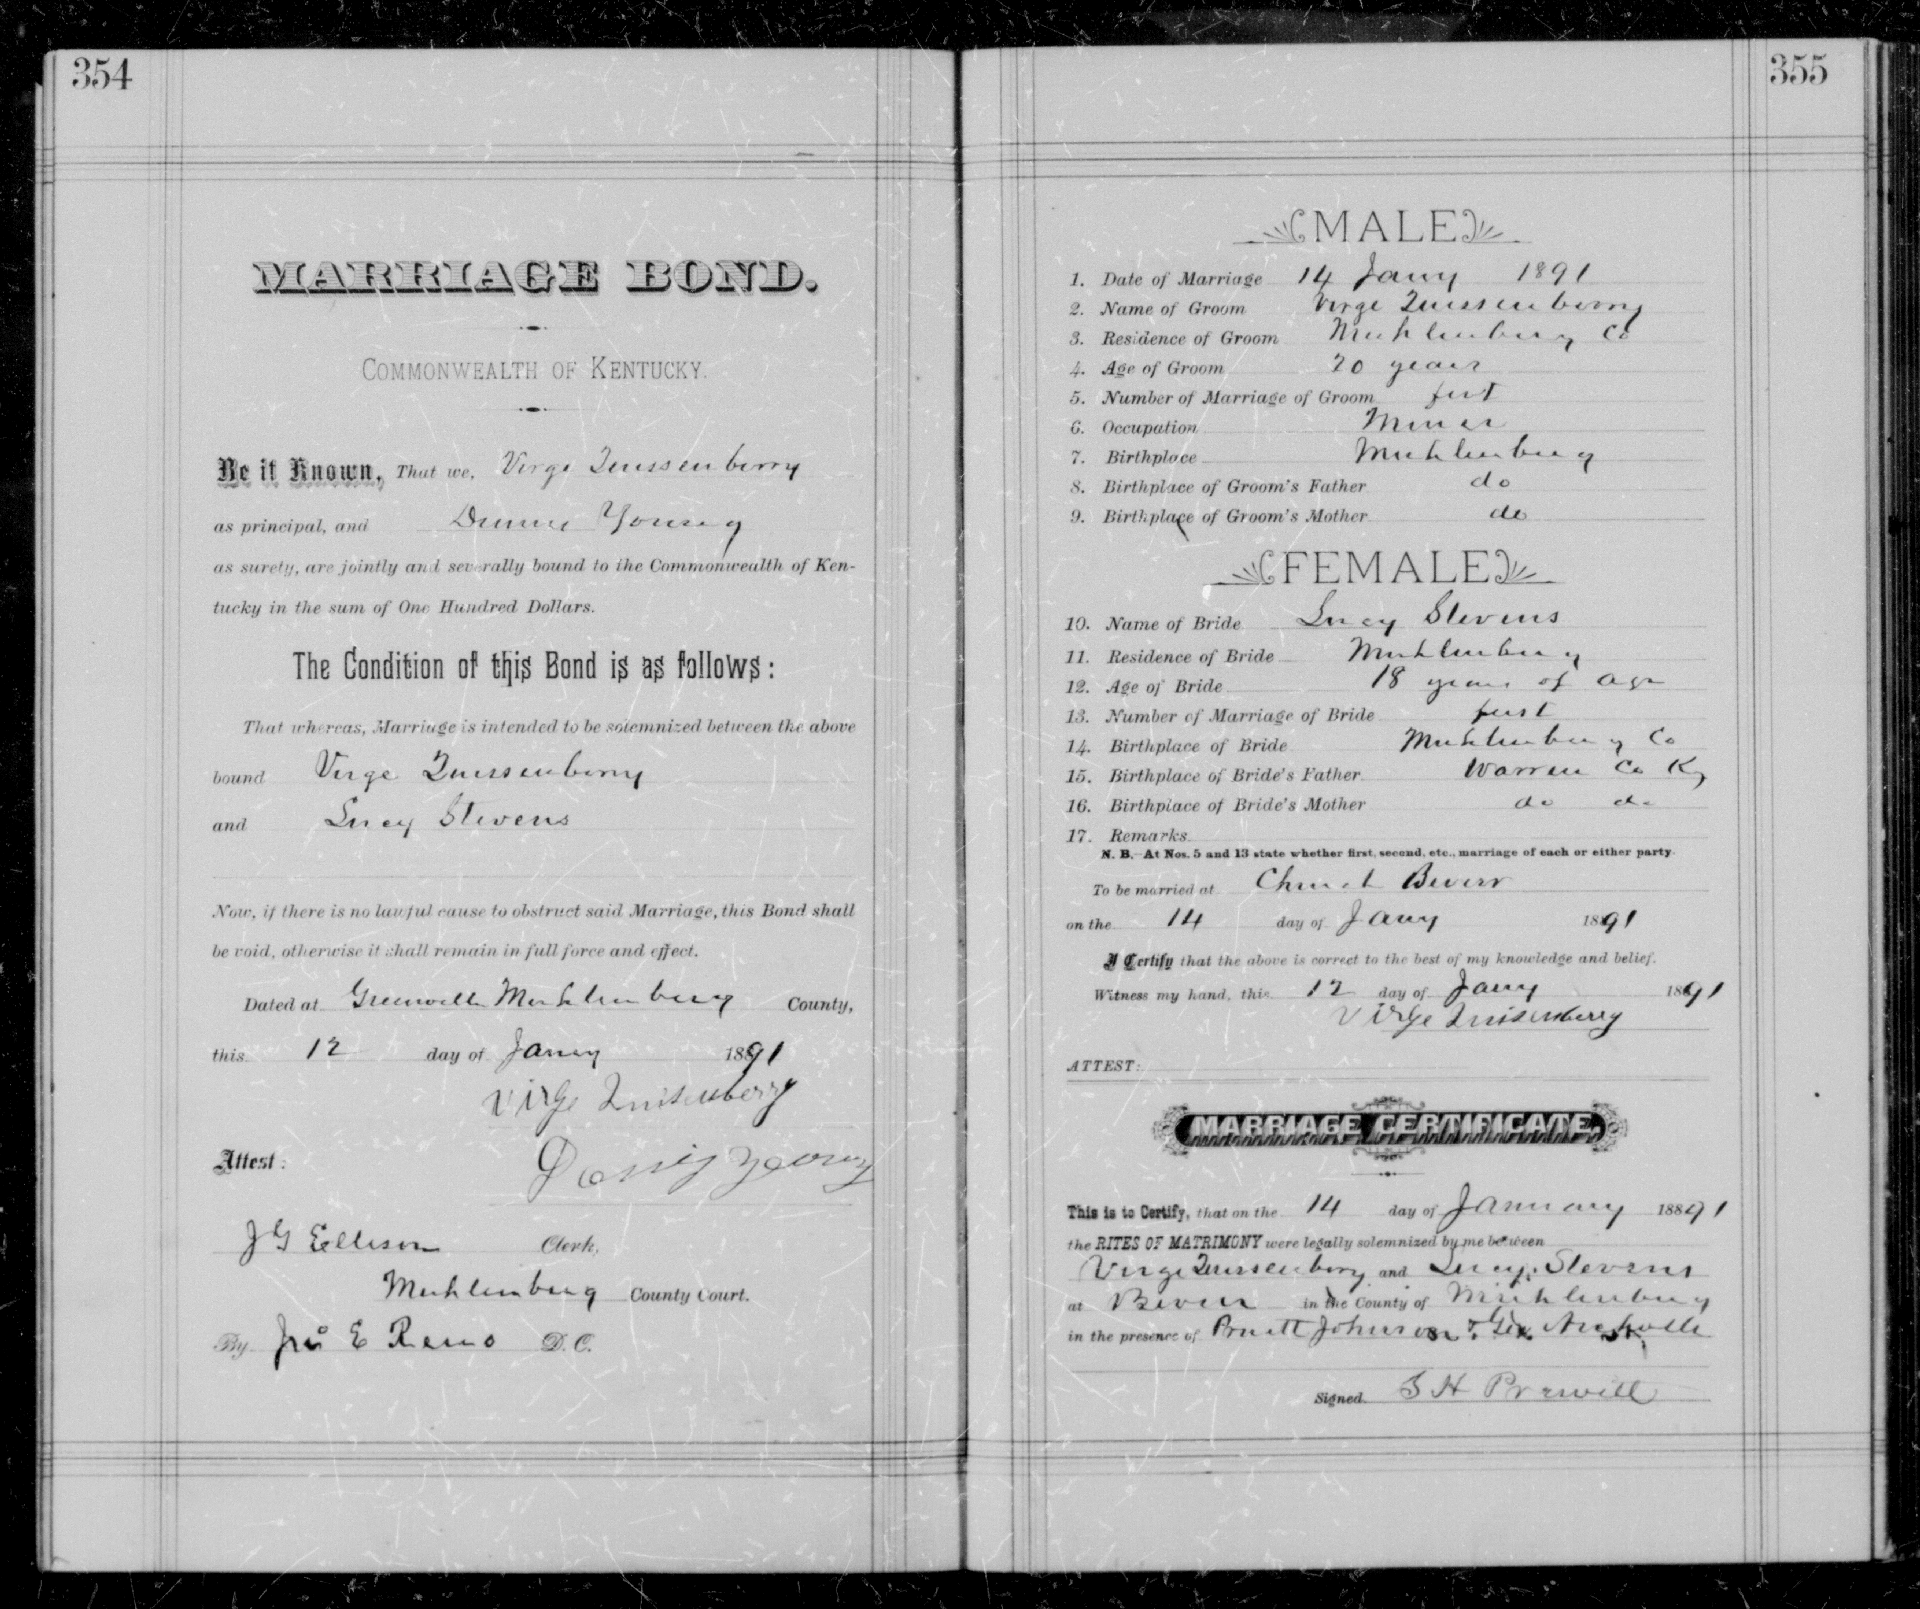 354
MARRIAGE BOND.
COMMONWEALTH OF KENTUCKY.
Be it Known, That we, Virge Quissenberry
as principal, and Young
as surety, are jointly and severally bound to the Commonwealth of Ken-
tucky in the sum of One Hundred Dollars.
The Condition of this Bond is as follows:
That whereas, Marriage is intended to be solemnized between the above
bound Virge Quissenberry
and Lucy Stevens
Now, if there is no lawful cause to obstruct said Marriage, this Bond shall
be void, otherwise it shall remain in full force and effect.
Dated at Greenville Muhlenburg County,
this 12 day of Jany 1891
Virge Quisenberry
Attest: Young
J G Ellison Clerk,
Muhlenburg County Court.
By Jno E Reno D.C.
355
MALE
1. Date of Marriage 14 Jany 1891
2. Name of Groom Virge Quissenberry
3. Residence of Groom Muhlenburg Co
4. Age of Groom 20 years
5. Number of Marriage of Groom first
6. Occupation Miner
7. Birthplace Muhlenburg
8. Birthplace of Groom's Father do
9. Birthplace of Groom's Mother do
FEMALE
10. Name of Bride Lucy Stevens
11. Residence of Bride Muhlenburg
12. Age of Bride 18 years of age
13. Number of Marriage of Bride first
14. Birthplace of Bride Muhlenburg Co
15. Birthplace of Bride's Father Warren Co Ky
16. Birthplace of Bride's Mother do do
17. Remarks
N. B.—At Nos. 5 and 13 state whether first, second, etc., marriage of each or either party.
To be married at Church
on the 14 day of Jany 1891
I Certify that the above is correct to the best of my knowledge and belief.
Witness my hand, this 12 day of Jany 1891
Virge Quisenberry
ATTEST:
MARRIAGE CERTIFICATE.
This is to Certify, that on the 14 day of January 1891
the RITES OF MATRIMONY were legally solemnized by me between
Virge Quissenberry and Lucy Stevens
at in the County of Muhlenburg
in the presence of Pruett Johnson & Geo
Signed